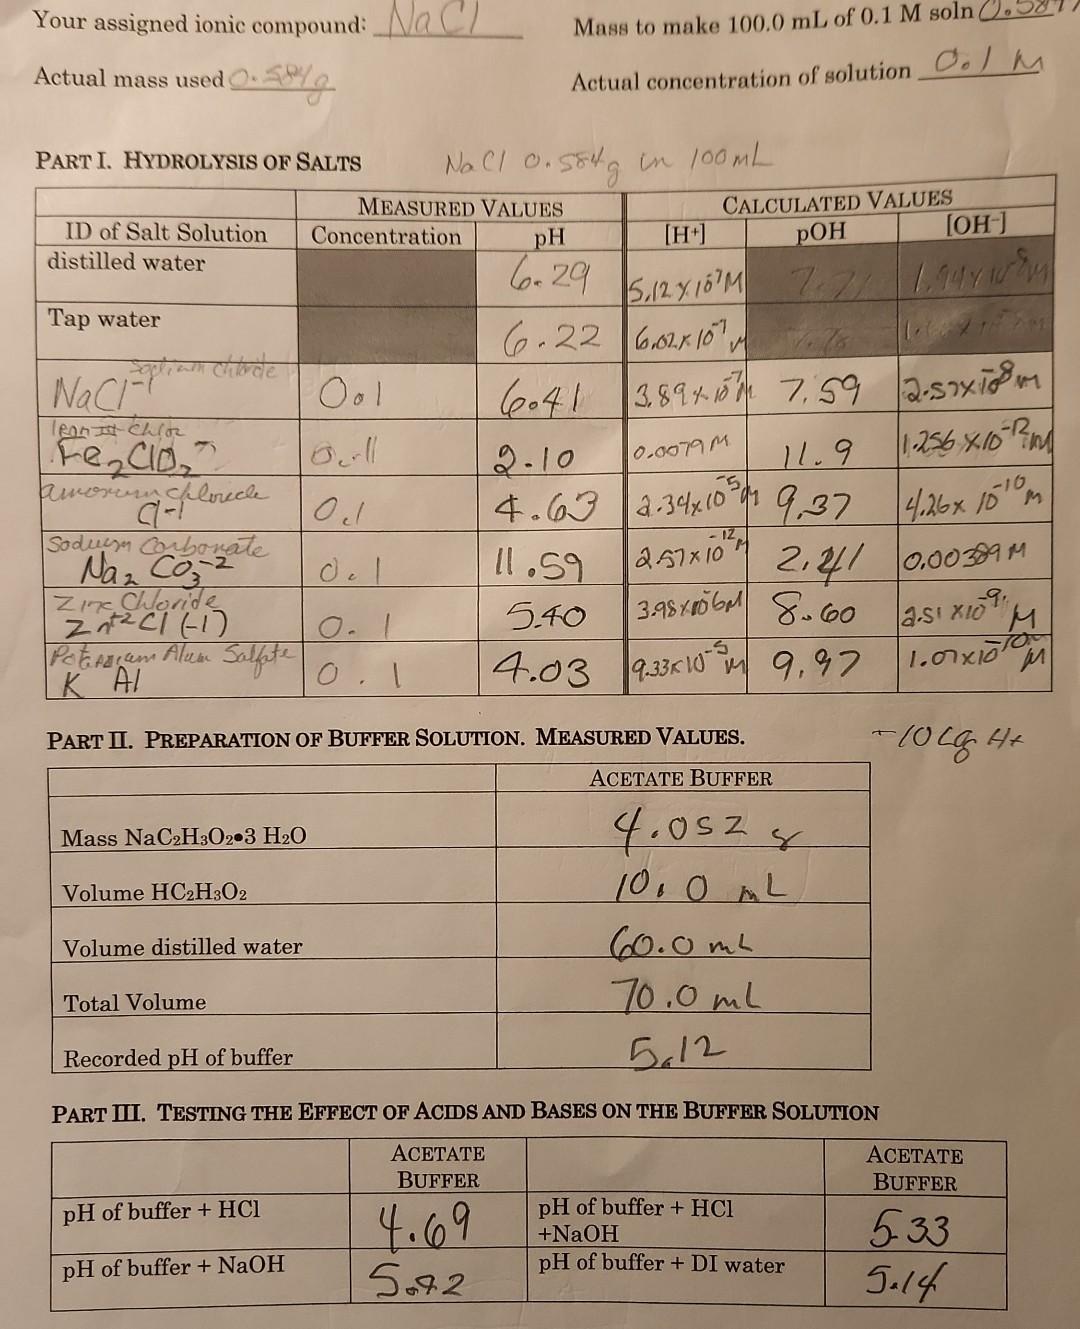 Your assigned ionic compound: NaCl
Mass to make 100.0 mL of 0.1 M soln
Actual mass used 0.584g
Actual concentration of solution 0.1 M
PART I. HYDROLYSIS OF SALTS NaCl 0.584g in 100mL
MEASURED VALUES CALCULATED VALUES
ID of Salt Solution Concentration pH [H+] pOH [OH-]
distilled water 6.29 5.12 x 10⁻⁷M 7.71 1.94 x 10⁻⁸M
Tap water 6.22 6.02 x 10⁻⁷ M
Sodium Chloride
NaCl⁻¹ 0.1 6.41 3.89 x 10⁻⁷M 7.59 2.57x10⁻⁸ m
Fe₂ClO₂ 2.10 0.0079 M 11.9 1.256 x10⁻¹² m
chloride
Cl-1 0.1 4.63 2.34x10⁻⁵M 9.37 4.26x 10⁻¹⁰ m
Sodium Carbonate
Na₂ CO₃⁻² 0.1 11.59 2.57x10⁻¹² M 2.41 0.00389 M
Zinc Chloride
Zn⁺² Cl (-1) 0.1 5.40 3.98x10⁻⁶M 8.60 2.51 x10⁻⁹ M
Potassium Alum Salfate
K Al 0.1 4.03 9.33x10⁻⁵ M 9.97 1.07x10⁻¹⁰ M
PART II. PREPARATION OF BUFFER SOLUTION. MEASURED VALUES. -10 H+
ACETATE BUFFER
Mass NaC₂H₃O₂•3 H₂O 4.052 g
Volume HC₂H₃O₂ 10.0 mL
Volume distilled water 60.0 mL
Total Volume 70.0 mL
Recorded pH of buffer 5.12
PART III. TESTING THE EFFECT OF ACIDS AND BASES ON THE BUFFER SOLUTION
ACETATE BUFFER ACETATE BUFFER
pH of buffer + HCl 4.69 pH of buffer + HCl +NaOH 5.33
pH of buffer + NaOH pH of buffer + DI water 5.14